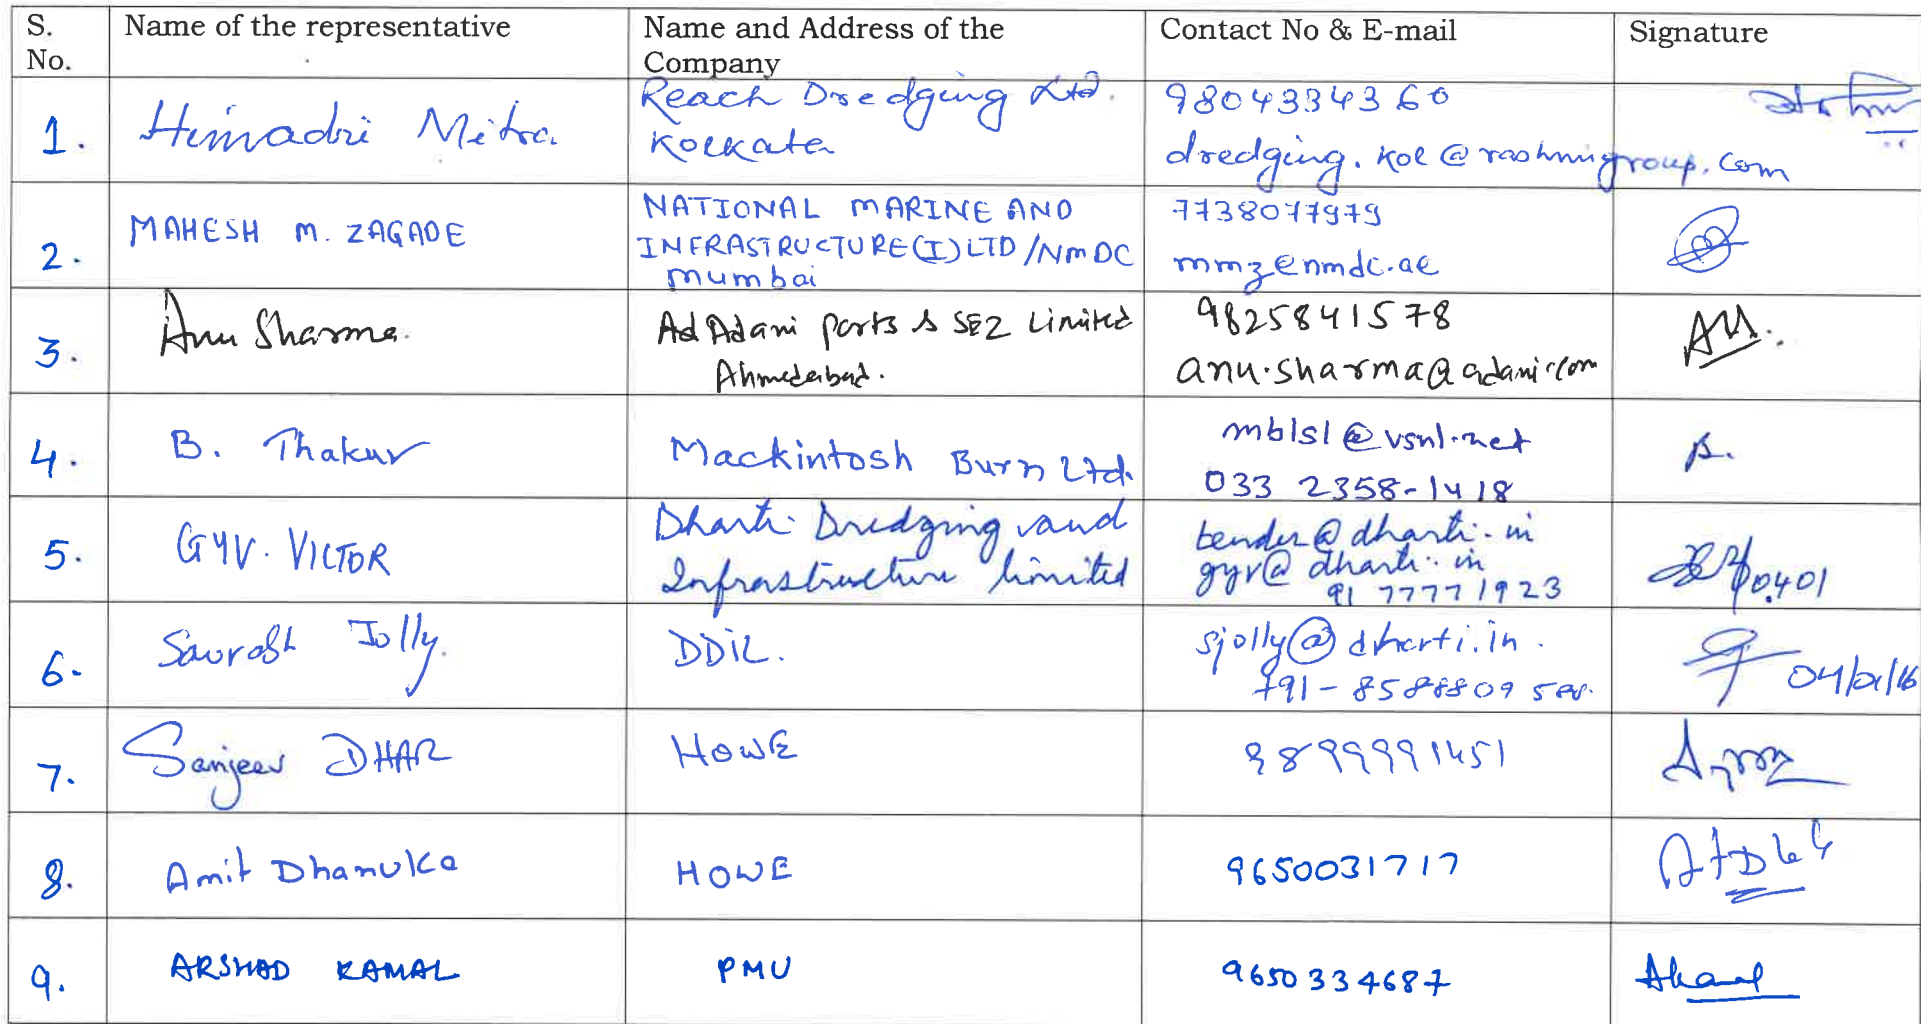 S. No. Name of the representative Name and Address of the Company Contact No & E-mail Signature
1. Himadri Mitra Reach Dredging Ltd. 9804334360
Kolkata dredging.kol@rashmigroup.com
2. MAHESH M. ZAGADE NATIONAL MARINE AND 7738077979
INFRASTRUCTURE(I)LTD/NMDC mmz@nmdc.ae
mumbai
3. Anu Sharma. Ad Adani Ports & SEZ Limited 9825841578
Ahmedabad. anu.sharma@adani.com
4. B. Thakur Mackintosh Burn Ltd. mblsl@vsnl.net B.
033 2358-1418
5. GYV. VICTOR Dharti Dredging and tender@dharti.in
Infrastructure limited gyv@dharti.in
91 77771923
6. Saurabh Jolly. DDIL. sjolly@dharti.in.
+91-8588809
7. Sanjeev DHAR HOWE 9899991451
8. Amit Dhanuka HOWE 9650031717
9. ARSHAD KAMAL PMU 9650334687